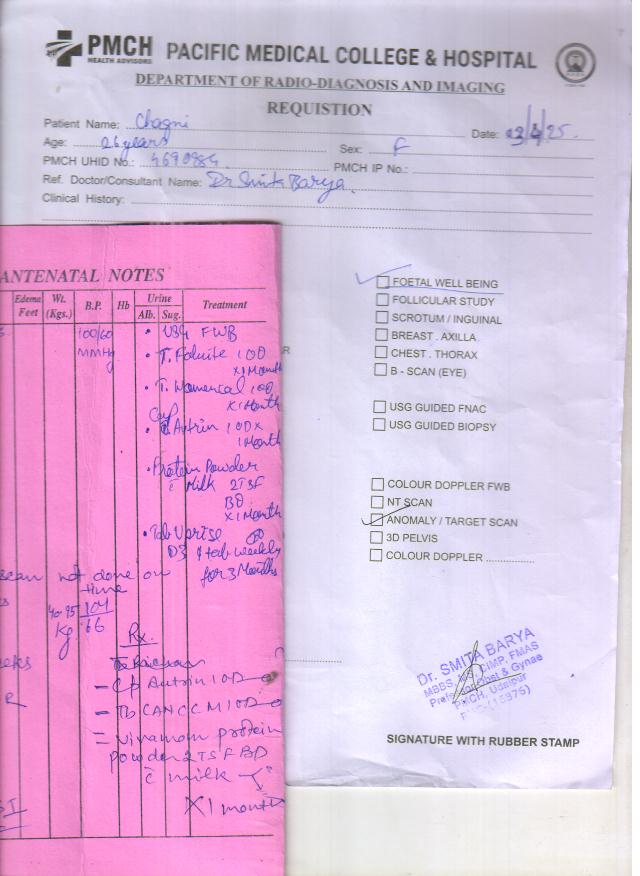 PMCH
HEALTH ADVISORS
PACIFIC MEDICAL COLLEGE & HOSPITAL
DEPARTMENT OF RADIO-DIAGNOSIS AND IMAGING
REQUISTION
Patient Name: Chagni Date: 23/4/25
Age: 26 years Sex: F
PMCH UHID No.: 4690984 PMCH IP No.:
Ref. Doctor/Consultant Name: Dr Smita Barya
Clinical History:
ANTENATAL NOTES
Edema Feet Wt. (Kgs.) B.P. Hb Urine Alb. Sug. Treatment
100/60 MMHg
• USG FWB
• T. Folvite 1OD
X1 Month
1OD
X1 Month
Cap Autrin 1OD X
1 Month
• Protein Powder
c̄ Milk 2TSF
BD
X1 Month
• Tab Uprise
D3 1 tab weekly
for 3 Months
scan not done on
time
Kg 104
66
Rx.
- Autrin 1OD
- Tb 1OD
protein
powder 2TSF BD
c̄ milk
X1 month
R
FOETAL WELL BEING
FOLLICULAR STUDY
SCROTUM / INGUINAL
BREAST . AXILLA
CHEST . THORAX
B - SCAN (EYE)
USG GUIDED FNAC
USG GUIDED BIOPSY
COLOUR DOPPLER FWB
NT SCAN
ANOMALY / TARGET SCAN
3D PELVIS
COLOUR DOPPLER
Dr. SMITA BARYA
MBBS, MS, CIMP, FMAS
Obst & Gynae
PMCH, Udaipur
SIGNATURE WITH RUBBER STAMP